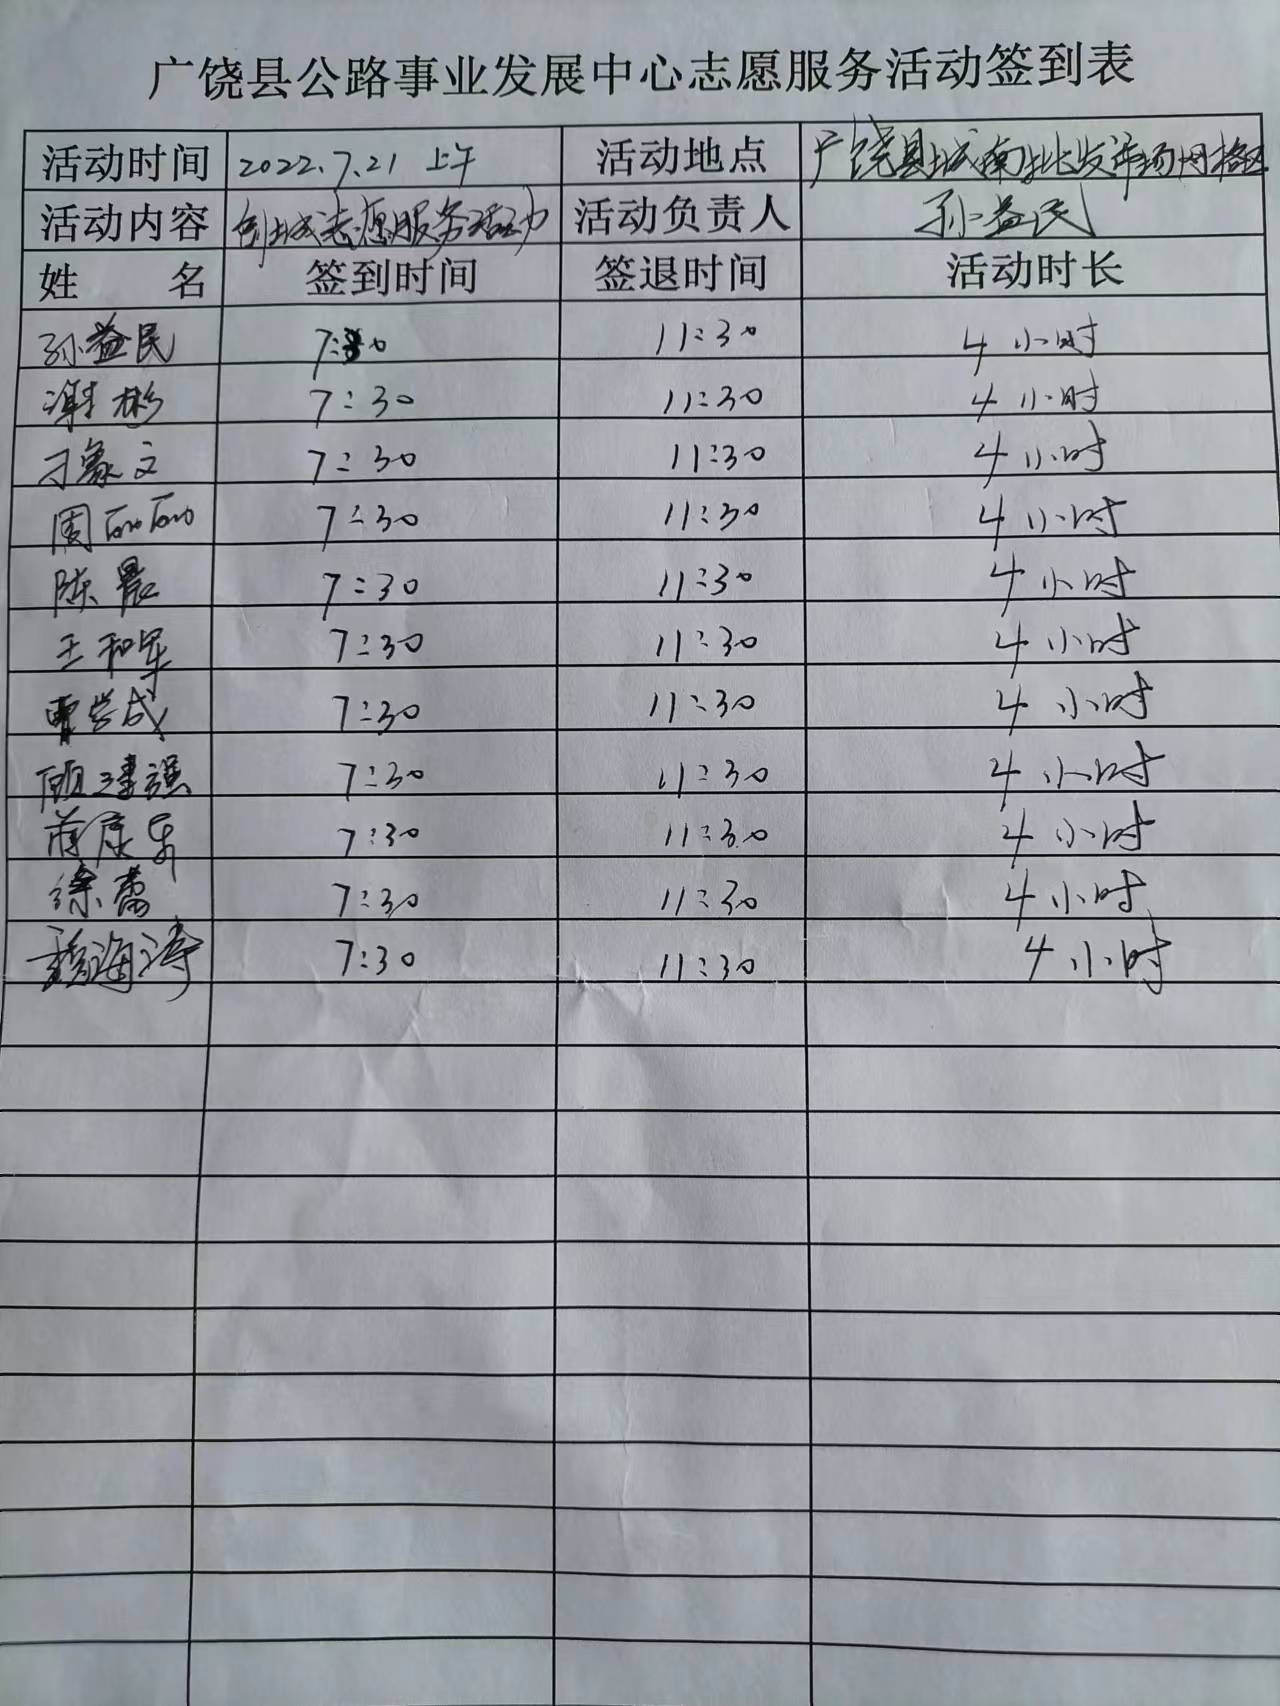 广饶县公路事业发展中心志愿服务活动签到表
活动时间 2022.7.21 上午 活动地点 广饶县城南批发市场网格区
活动内容 创城志愿服务活动 活动负责人 孙益民
姓 名 签到时间 签退时间 活动时长
孙益民 7:30 11:30 4小时
谢彬 7:30 11:30 4小时
刁象文 7:30 11:30 4小时
周丽丽 7:30 11:30 4小时
陈晨 7:30 11:30 4小时
王和军 7:30 11:30 4小时
曹学成 7:30 11:30 4小时
顾建强 7:30 11:30 4小时
蒋康乐 7:30 11:30 4小时
徐蕾 7:30 11:30 4小时
海涛 7:30 11:30 4小时